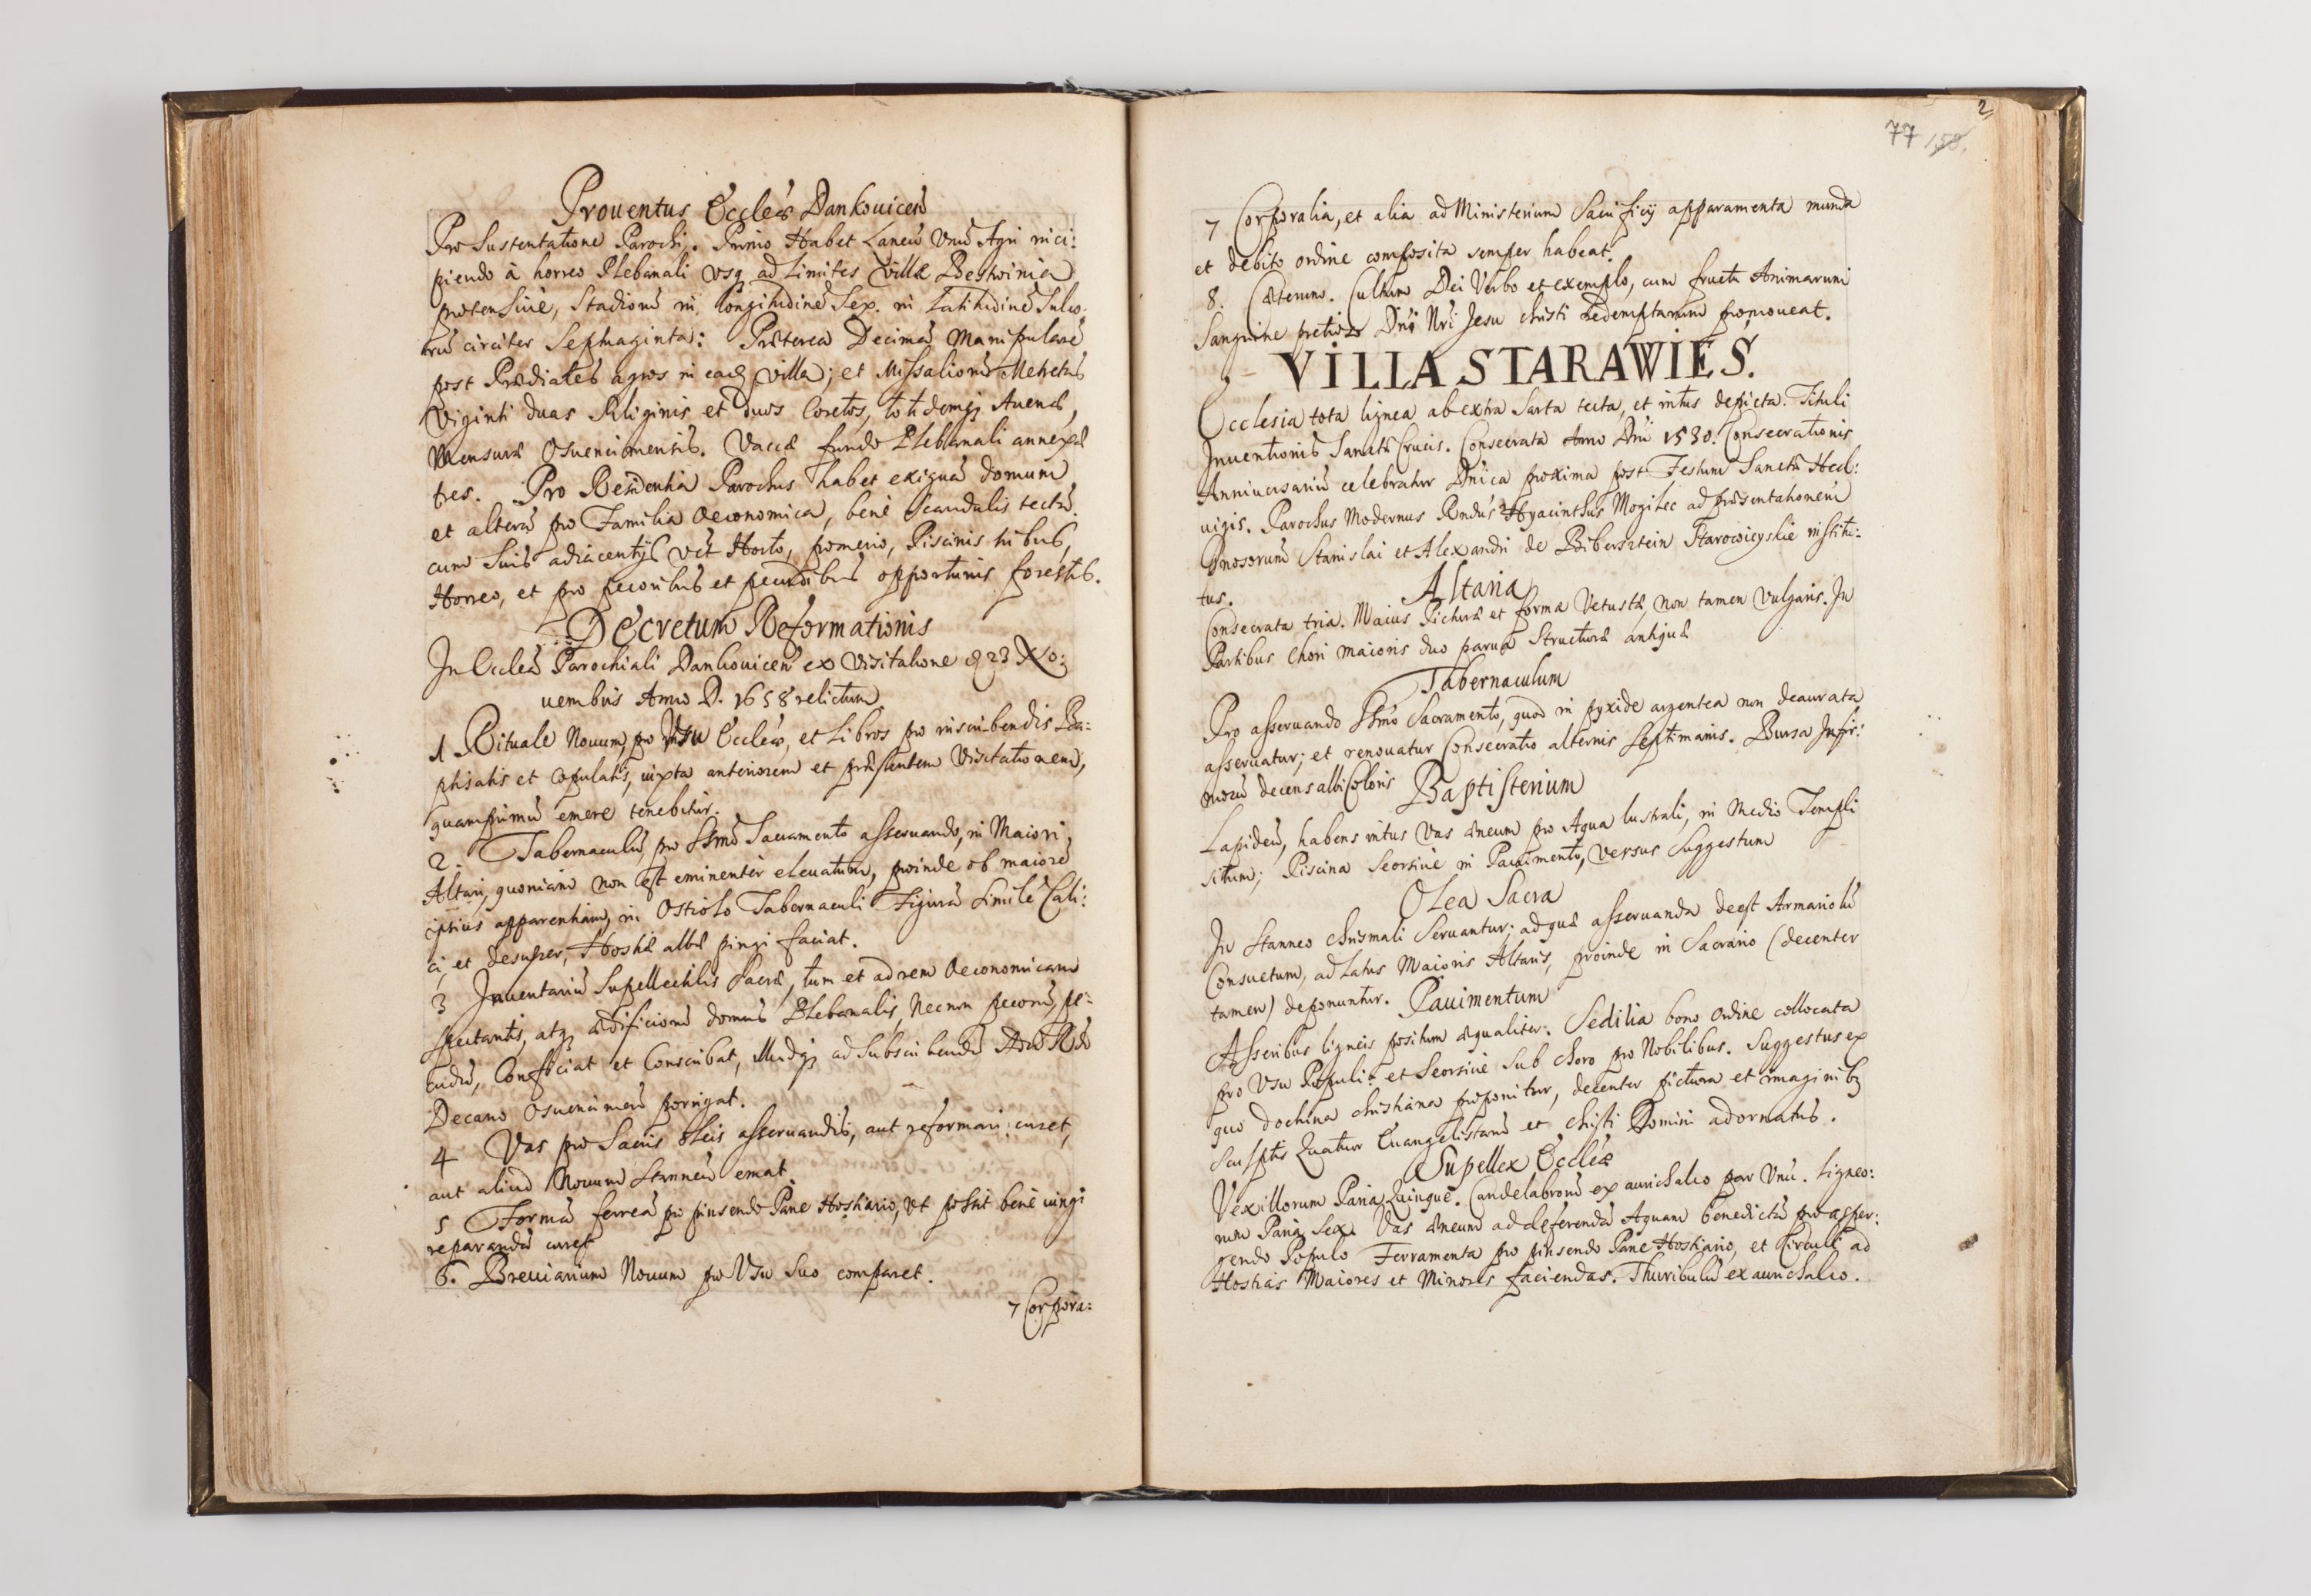 Prouentus Eccleæ Dankouicen̄
Pro Sustentatione Parochi. Primo Habet Laneū Vnū Agri inci:
piendo à horreo Plebanali vsq ad Limites Villæ Bestwinia
protensiuè, Stadiorū in longitudine Sex. in Latitudinē Sulco:
rū circiter Septuaginta: Præterea Decimā Manipularē
post Prædiales agros in eadē villa; et Missaliorū Metretas
Viginti duas Siliginis et duos Coretos, totidemq Auenæ,
Mensuræ Osuencimensis. Vaccæ fundo Plebanali annexæ
tres. Pro Residentia Parochus habet exiguā domum,
et alterā pro Familia Oeconomica, benè scandulis tectā.
cum Suis adiacentijs vt Horto, pomerio, Piscinis tribus,
Horreo, et pro pecoribus et pecudibus opportunis forestis.
Decretum Reformationis
In Ecclea Parochiali Dankouicen̄ ex Visitatione 23 No:
uembris Anno D. 1658 relictum
1 Rituale Nouum pro Vsu Eccleæ, et Libros pro inscribendis Ba:
ptisatis et Copulatis, iuxta anteriorem et præsentem Visitationem,
quamprimū emere tenebitur.
2. Tabernaculū pro Ssmō Sacramento asseruando, in Maiori
Altari, quoniam non est eminenter eleuatum, proinde ob maiorē
ipsius apparentiam, in Ostiolo Tabernaculi Figurā Similē Cali:
ci, et desuper, Hostiæ albæ pingi faciat.
3 Inuentariū Supellectilis Sacræ, tum et ad rem Oeconomicam
spectantis, atq ædificiorū domus Plebanalis, Necnon pecorū, pe:
cudū, Conficiat et Conscribat, illudq ad Subscribendū
Decano Osuencimen̄ porrigat.
4 Vas pro Sacris Oleis asseruandis, aut reformari curet,
aut aliud Nouum Stanneū emat.
5 Formā ferreā pro pinsendo Pane Hostiario, Vt possit benè iungi
reparandā curet
6. Breuiarium Nouum pro Vsu Suo comparet.
7 Corpora:
2
77 158.
7 Corporalia, et alia ad Ministerium Sacrificij apparamenta munda
et debito ordine composita semper habeat.
8. Cæterum. Cultum Dei Verbo et exemplo, cum fructu Animarum
Sanguine pretioso Dnī Nrī Jesu christi redemptarum promoueat.
VILLA STARAWIES.
Ecclesia tota lignea ab extra Sarta tecta, et intus depicta. Tituli
Inuentionis Sanctæ Crucis. Consecrata Anno Dnī 1530. Consecrationis
Anniuersariū celebratur Dnīca proxima post Festum Sanctæ Hed:
uigis. Parochus Modernus Rndūs Hyacinthus Mogilec ad præsentationem
Gnosorum Stanislai et Alexandri de Bibersztein Starowieyskie institu:
tus.
Altaria
Consecrata tria. Maius Picturæ et forma Vetustæ, non tamen Vulgaris. In
Partibus Chori Maioris duo parua Structuræ antiquæ
Tabernaculum
Pro asseruando Ssmō Sacramento, quod in pyxide argentea non deaurata
asseruatur; et renouatur Consecratio alternis Septimanis. Bursa Infir:
morū decens albi Coloris
Baptisterium
Lapideū, habens intus Vas æneum pro Aqua lustrali, in Medio Templi
situm; Piscina Seorsiuè in Pauimento, versus Suggestum
Olea Sacra
In Stanneo chrismali Seruantur; ad quæ asseruanda deest Armariolū
Consuetum, ad Latus Maioris Altaris, proinde in Sacrario (decenter
tamen) deponuntur.
Pauimentum
Asseribus ligneis positum æqualiter. Sedilia bono Ordine collocata
pro Vsu Populi: et Seorsiuè Sub choro pro Nobilibus. Suggestus ex
quo doctrina christiana proponitur, decenter pictura et imaginibq
Sculptis Quatuor Euangelistarū et christi Domini adornatus.
Supellex Eccleæ
Vexillorum Paria Quinque. Candelabrorū ex aurichalco par Vnū. Ligneo:
rum Paria Sex. Vas æneum ad deferendā Aquam benedictā pro asper:
gendo Populo Ferramenta pro pinsendo Pane Hostiario, et Circuli ad
Hostias Maiores et Minores faciendas. Thuribulū ex aurichalco.